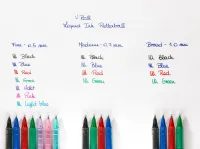 V Ball
Liquid Ink Rollerball
Fine - 0.5 mm
Medium - 0.7 mm
Broad - 1.0 mm
Black
Black
Black
Blue
Blue
Blue
Red
Red
Red
Green
Green
Green
Violet
Pink
Light blue